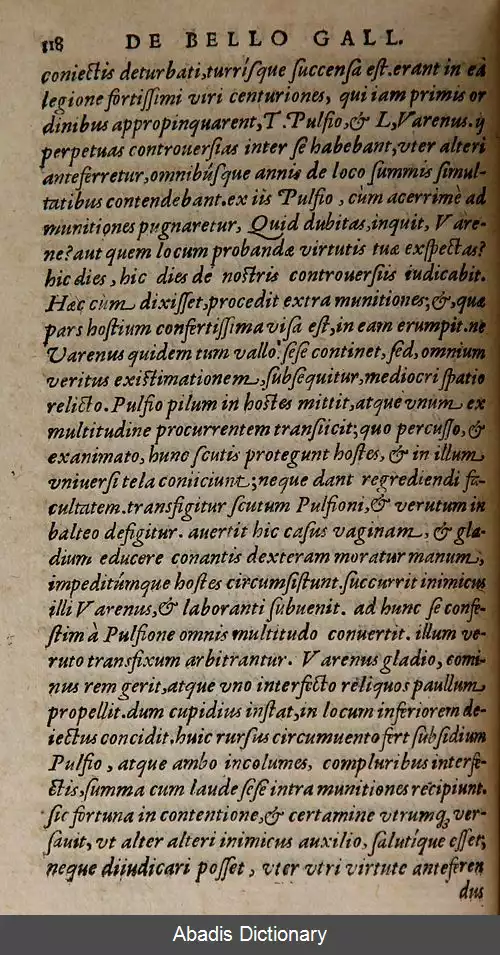 118 DE BELLO GALL.
coniectis deturbati, turrísque succensa est. erant in eâ
legione fortissimi viri centuriones, qui iam primis or
dinibus appropinquarent, T. Pulfio, & L, Varenus. ij
perpetuas controuersias inter se habebant, vter alteri
anteferretur, omnibúsque annis de loco summis simul-
tatibus contendebant. ex iis Pulfio, cùm acerrimè ad
munitiones pugnaretur, Quid dubitas, inquit, Vare-
ne? aut quem locum probandæ virtutis tuæ exspectas?
hic dies, hic dies de nostris controuersiis iudicabit.
Hæc cùm dixisset, procedit extra munitiones; &, quæ
pars hostium confertissima visa est, in eam erumpit. ne
Varenus quidem tum vallo sese continet, sed, omnium
veritus existimationem, subsequitur, mediocri spatio
relicto. Pulfio pilum in hostes mittit, atque vnum ex
multitudine procurrentem transiicit; quo percusso, &
exanimato, hunc scutis protegunt hostes, & in illum
vniuersi tela coniiciunt; neque dant regrediendi fa-
cultatem. transfigitur scutum Pulfioni, & verutum in
balteo defigitur. auertit hic casus vaginam, & gla-
dium educere conantis dexteram moratur manum,
impeditúmque hostes circumsistunt. succurrit inimicus
illi Varenus, & laboranti subuenit. ad hunc se confe-
stim à Pulfione omnis multitudo conuertit. illum ve-
ruto transfixum arbitrantur. Varenus gladio, comi-
nus rem gerit, atque vno interfecto reliquos paullum
propellit. dum cupidius instat, in locum inferiorem de-
iectus concidit. huic rursus circumuento fert subsidium
Pulfio, atque ambo incolumes, compluribus interfe-
ctis, summa cum laude sese intra munitiones recipiunt.
sic fortuna in contentione, & certamine vtrumq; ver-
sauit, vt alter alteri inimicus auxilio, salutíque esset,
neque diiudicari posset, vter vtri virtute anteferen
dus
Abadis Dictionary